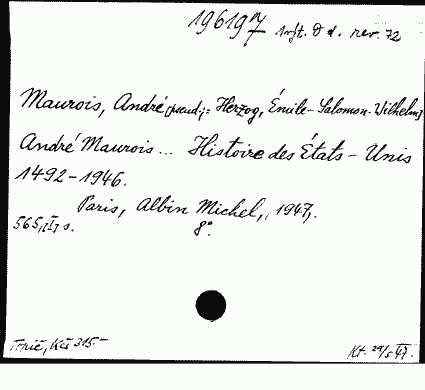 19619
rev. 72
Maurois, André [pseud.;= Herzog, Émile-Salomon-Wilhelm]
André Maurois ... Histoire des États-Unis
1492-1946.
Paris, Albin Michel, 1947.
565, [I] s. 8°.
Kčs 315.-
Kt. 29/5 47.